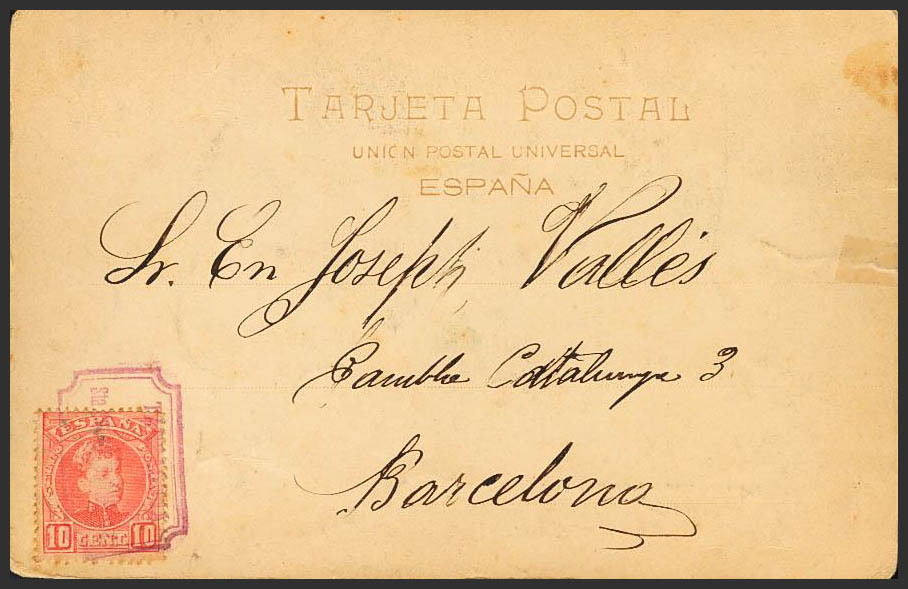 TARJETA POSTAL
UNIÓN POSTAL UNIVERSAL
ESPAÑA
Sr. En Joseph Vallés
Rambla Cattalunya 3
Barcelona
Sta
ESPAÑA
10 CENT. 10